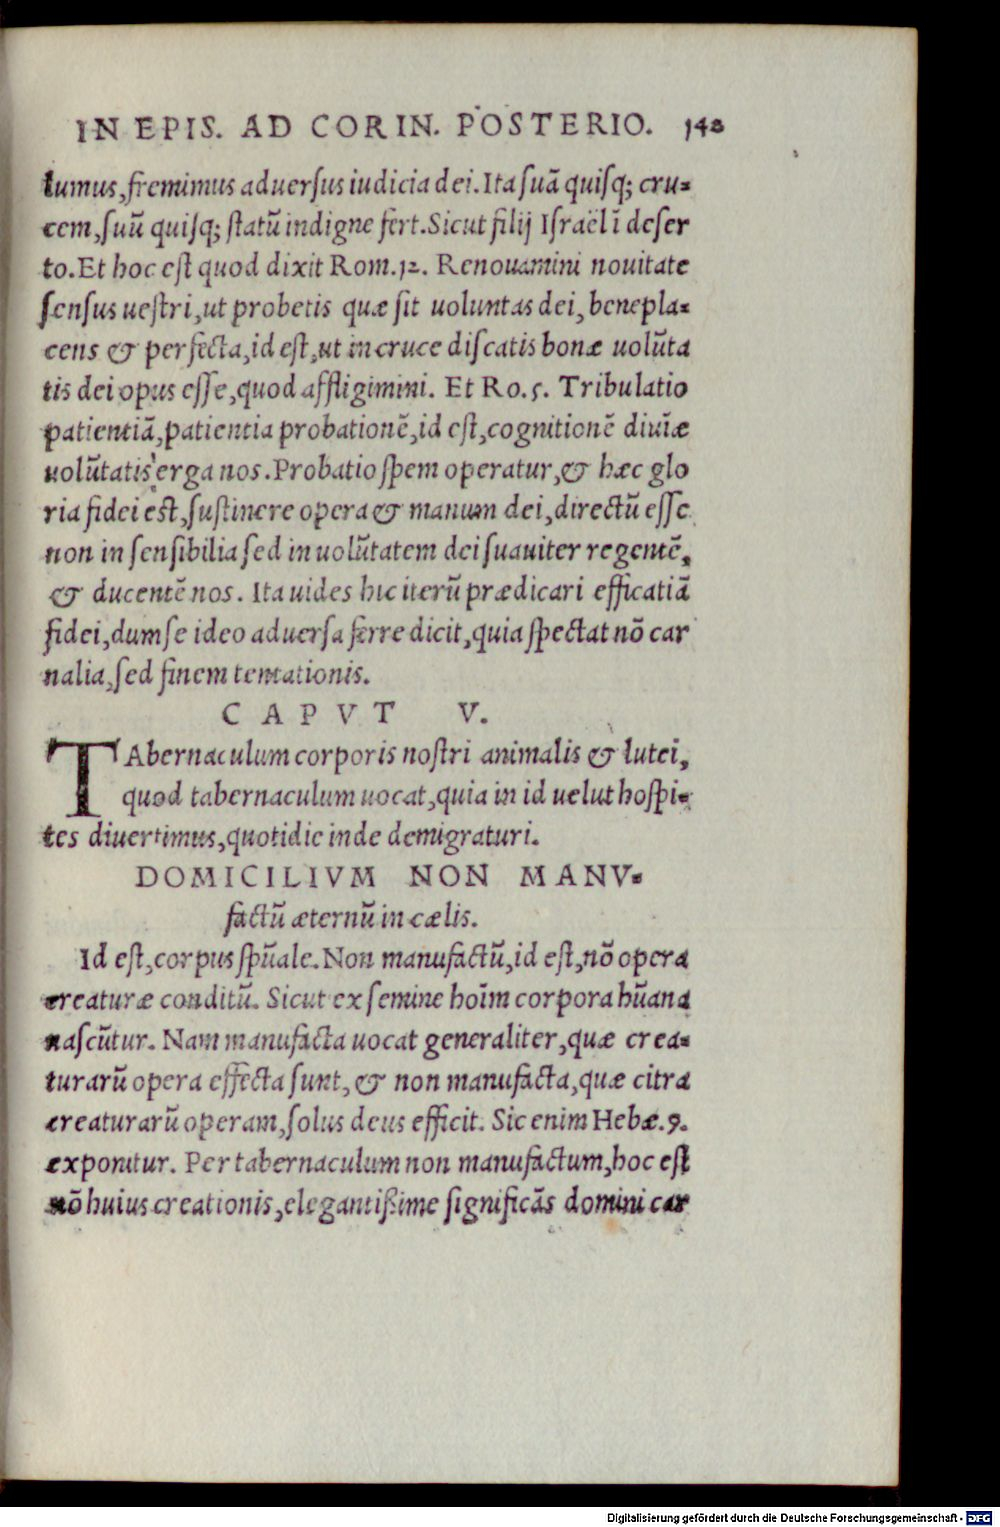 IN EPIS. AD CORIN. POSTERIO. 148
tumus, fremimus aduersus iudicia dei. Ita suā quisq; cru-
cem, suū quisq; statū indigne fert. Sicut filij Israël ī deser
to. Et hoc est quod dixit Rom. 12. Renouamini nouitate
sensus uestri, ut probetis quæ sit uoluntas dei, benepla-
cens & perfecta, id est, ut in cruce discatis bonæ uolūta
tis dei opus esse, quod affligimini. Et Ro. 5. Tribulatio
patientiā, patientia probationē, id est, cognitionē diuīæ
uolūtatis erga nos. Probatio spem operatur, & hæc glo
ria fidei est, sustinere opera & manum dei, directū esse
non in sensibilia sed in uolūtatem dei suauiter regentē,
& ducentē nos. Ita uides hic iterū prædicari efficatiā
fidei, dum se ideo aduersa ferre dicit, quia spectat nō car
nalia, sed finem tentationis.
CAPVT V.
TAbernaculum corporis nostri animalis & lutei,
quod tabernaculum uocat, quia in id uelut hospi-
tes diuertimus, quotidie inde demigraturi.
DOMICILIVM NON MANV-
factū æternū in cælis.
Id est, corpus spūale. Non manufactū, id est, nō opera
creaturæ conditū. Sicut ex semine hoīm corpora hūana
nascūtur. Nam manufacta uocat generaliter, quæ crea-
turarū opera effecta sunt, & non manufacta, quæ citra
creaturarū operam, solus deus efficit. Sic enim Hebæ. 9.
exponitur. Per tabernaculum non manufactum, hoc est
nō huius creationis, elegantißime significās domini car
Digitalisierung gefördert durch die Deutsche Forschungsgemeinschaft - DFG